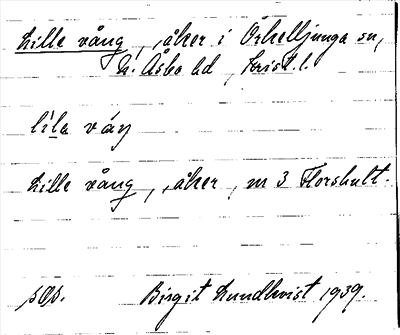 Lille vång, åker i Örkelljunga sn,
N. Åsbo hd, Krist. l.
lila váŋ
Lille vång, åker, m 3 Florshult.
sås. Birgit Lundkvist 1939.